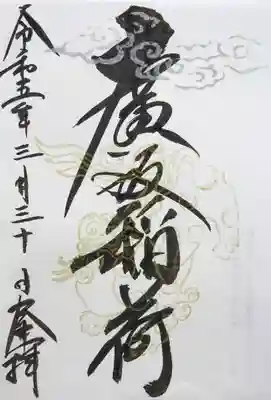 稲荷
令和五年三月三十日奉拝